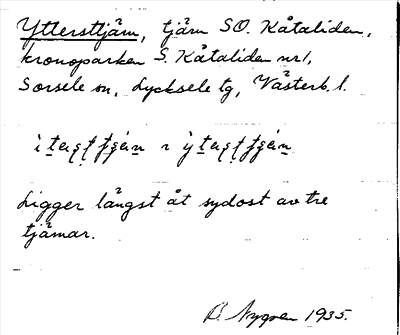 Ytterstjärn, tjärn SO. Kåtaliden,
kronoparken S. Kåtaliden nr 1,
Sorsele sn, Lycksele tg, Västerb. l.
Ligger längst åt sydost av tre
tjärnar.
B. Nygren 1935.